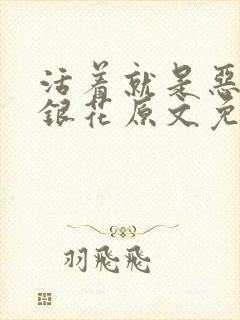 活着就是惡
銀花原文免
羽飛飛